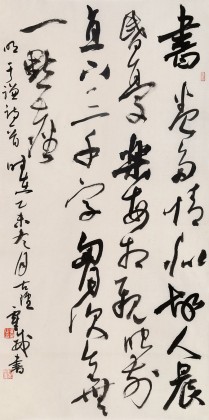 書卷多情似故人晨
昏憂樂每相親眼前
直下三千字胸次全無
一點塵
明于謙詩首時在乙未冬月古書